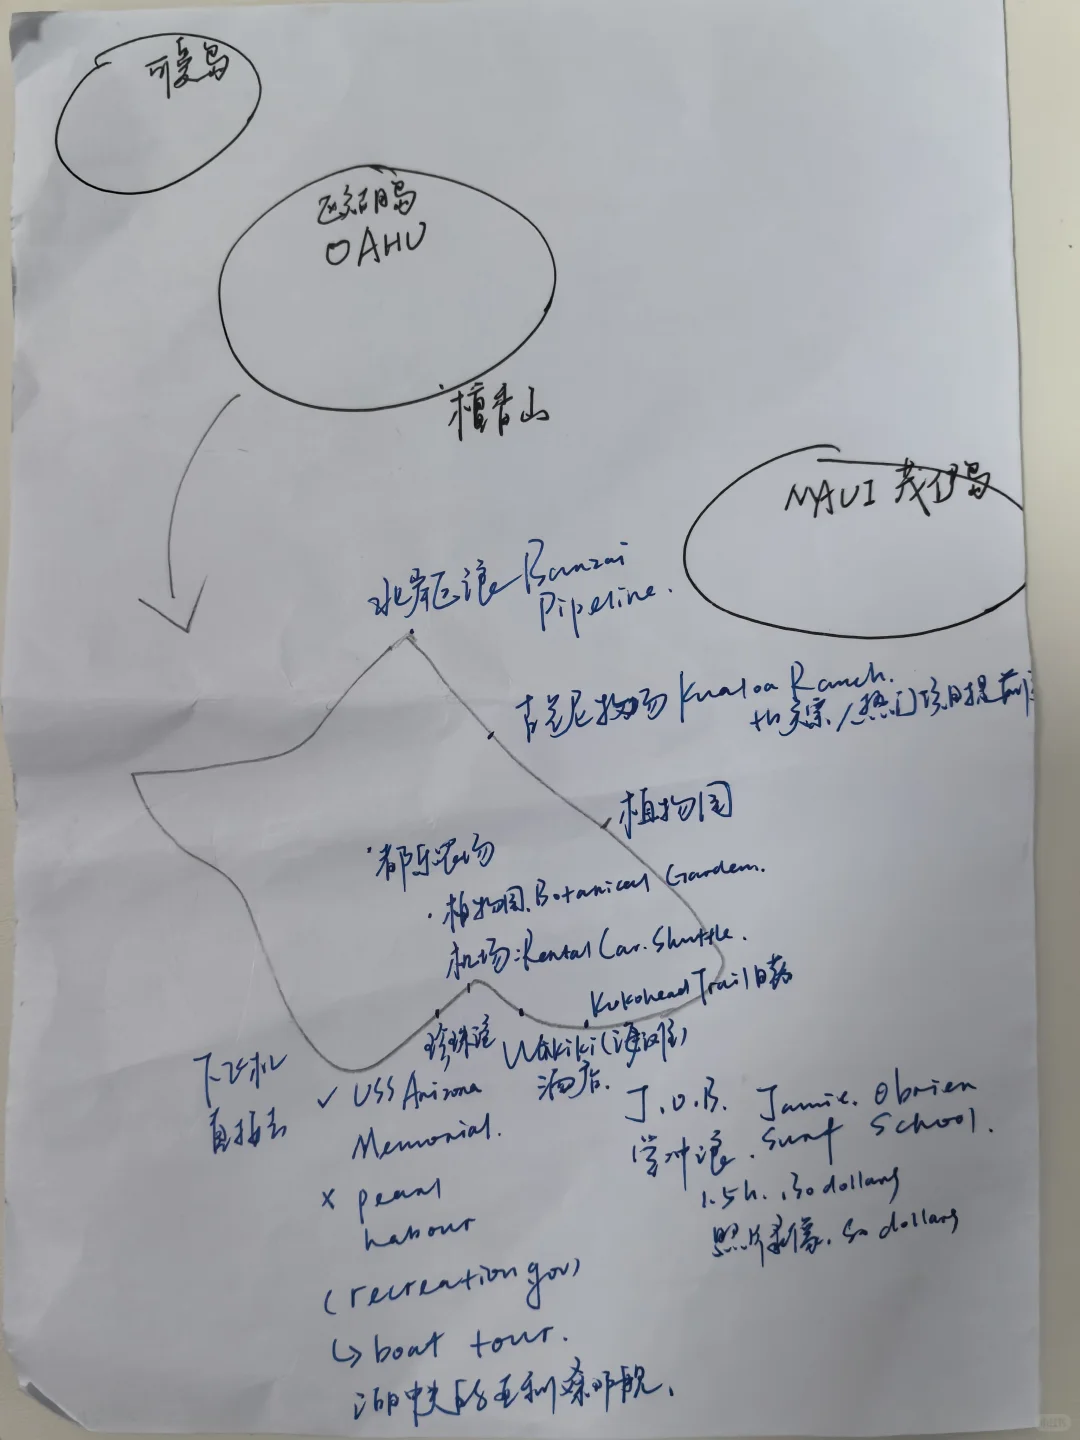 可爱岛
欧胡岛
OAHU
檀香山
MAUI 茂伊岛
北岸巨浪 Banzai
Pipeline.
古兰尼牧场 Kualoa Ranch.
热门项目提前
植物园
都乐农场
植物园.Botanical Garden.
机场:Rental Car.Shuttle.
KokoheadTrail日落
珍珠港
Waikiki(海滩)
酒店.
下飞机
直接去
✓ USS Arizona
Memorial.
x pearl
habour
(recreation gov)
↳ boat tour.
海中央的亚利桑那舰.
J.O.B. Jamie. Obrien
学冲浪. Surf School.
1.5h. 130 dollars
照片录像. 50 dollars